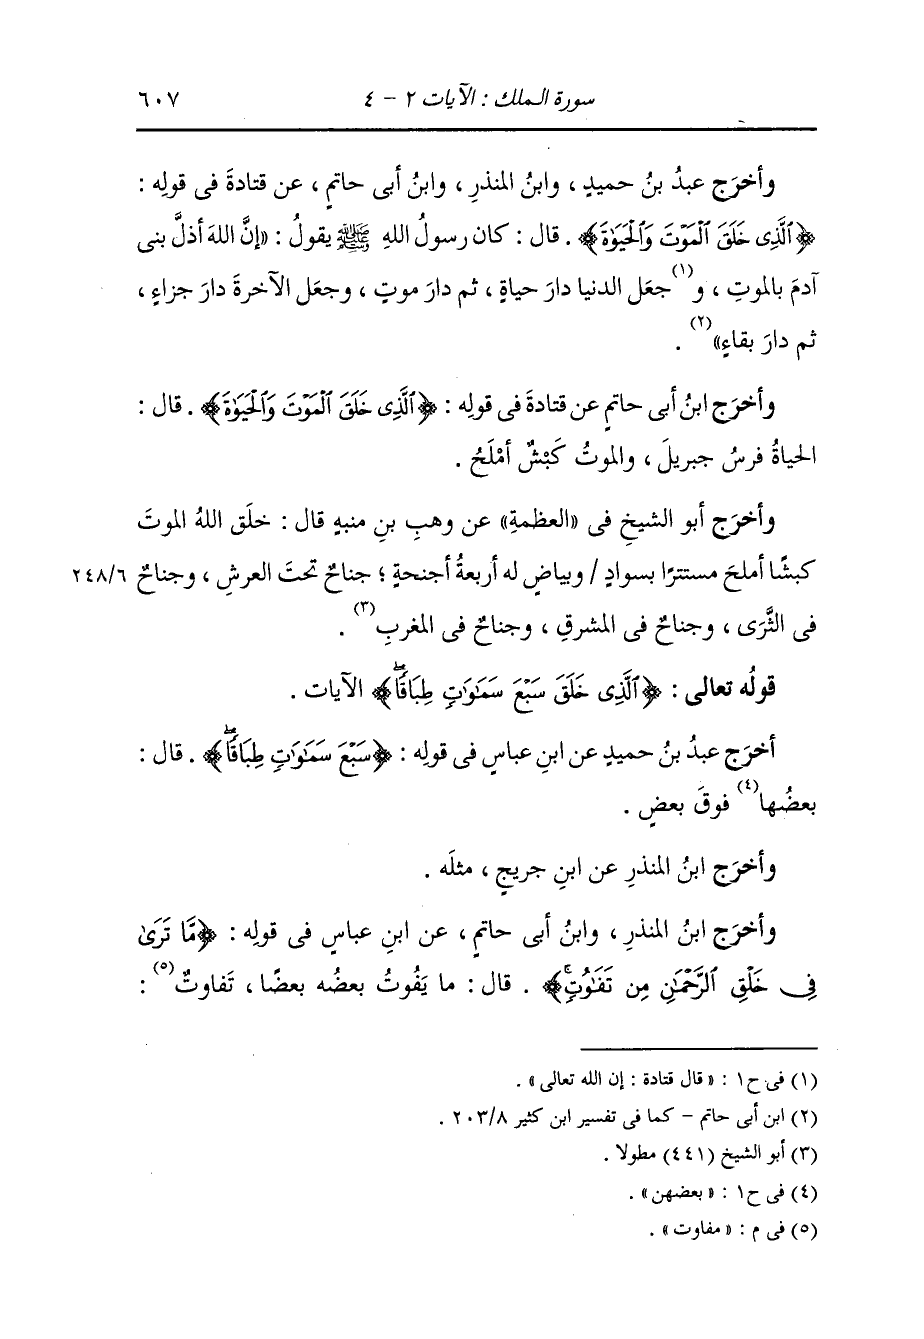 سورة الملك : الآيات ٢ - ٤ ٦٠٧
وأخرَج عبدُ بنُ حميدٍ ، وابنُ المنذرِ ، وابنُ أبى حاتمٍ ، عن قتادةَ فى قولِه :
﴿ٱلَّذِى خَلَقَ ٱلْمَوْتَ وَٱلْحَيَوٰةَ﴾ . قال : كان رسولُ اللهِ ﷺ يقولُ : «إنَّ اللهَ أذلَّ بنى
آدمَ بالموتِ ، و(١)جعَل الدنيا دارَ حياةٍ ، ثم دارَ موتٍ ، وجعَل الآخرةَ دارَ جزاءٍ ،
ثم دارَ بقاءٍ»(٢) .
وأخرَج ابنُ أبى حاتمٍ عن قتادةَ فى قولِه : ﴿ٱلَّذِى خَلَقَ ٱلْمَوْتَ وَٱلْحَيَوٰةَ﴾ . قال :
الحياةُ فرسُ جبريلَ ، والموتُ كَبْشٌ أمْلَحُ .
وأخرَج أبو الشيخِ فى «العظمةِ» عن وهبِ بنِ منبهٍ قال : خلَق اللهُ الموتَ
كبشًا أملحَ مستترًا بسوادٍ / وبياضٍ له أربعةُ أجنحةٍ ؛ جناحٌ تحتَ العرشِ ، وجناحٌ ٢٤٨/٦
فى الثَّرَى ، وجناحٌ فى المشرقِ ، وجناحٌ فى المغربِ(٣) .
قولُه تعالى : ﴿ٱلَّذِى خَلَقَ سَبْعَ سَمَٰوَٰتٍ طِبَاقًاۖ﴾ الآيات .
أخرَج عبدُ بنُ حميدٍ عن ابنِ عباسٍ فى قولِه : ﴿سَبْعَ سَمَٰوَٰتٍ طِبَاقًاۖ﴾ . قال :
بعضُها(٤) فوقَ بعضٍ .
وأخرَج ابنُ المنذرِ عن ابنِ جريجٍ ، مثلَه .
وأخرَج ابنُ المنذرِ ، وابنُ أبى حاتمٍ ، عن ابنِ عباسٍ فى قولِه : ﴿مَّا تَرَىٰ
فِى خَلْقِ ٱلرَّحْمَٰنِ مِن تَفَٰوُتٍۚ﴾ . قال : ما يَفُوتُ بعضُه بعضًا ، تَفاوتٌ(٥) :
(١) فى ح١ : « قال قتادة : إن الله تعالى » .
(٢) ابن أبى حاتم - كما فى تفسير ابن كثير ٢٠٣/٨ .
(٣) أبو الشيخ (٤٤١) مطولا .
(٤) فى ح١ : « بعضهن » .
(٥) فى م : « مفاوت » .